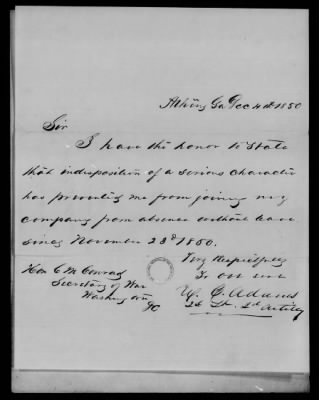 Athens Ga Dec 4th 1850
Sir
I have the honor to State
that indisposition of a serious character
has prevented me from joining my
company from absence without leave
since November 23d 1850.
Very Respectfully
Hon C M Conrad
Secretary of War
Washington
DC
Yr obt
Adams
2d Lt. 2d Artily